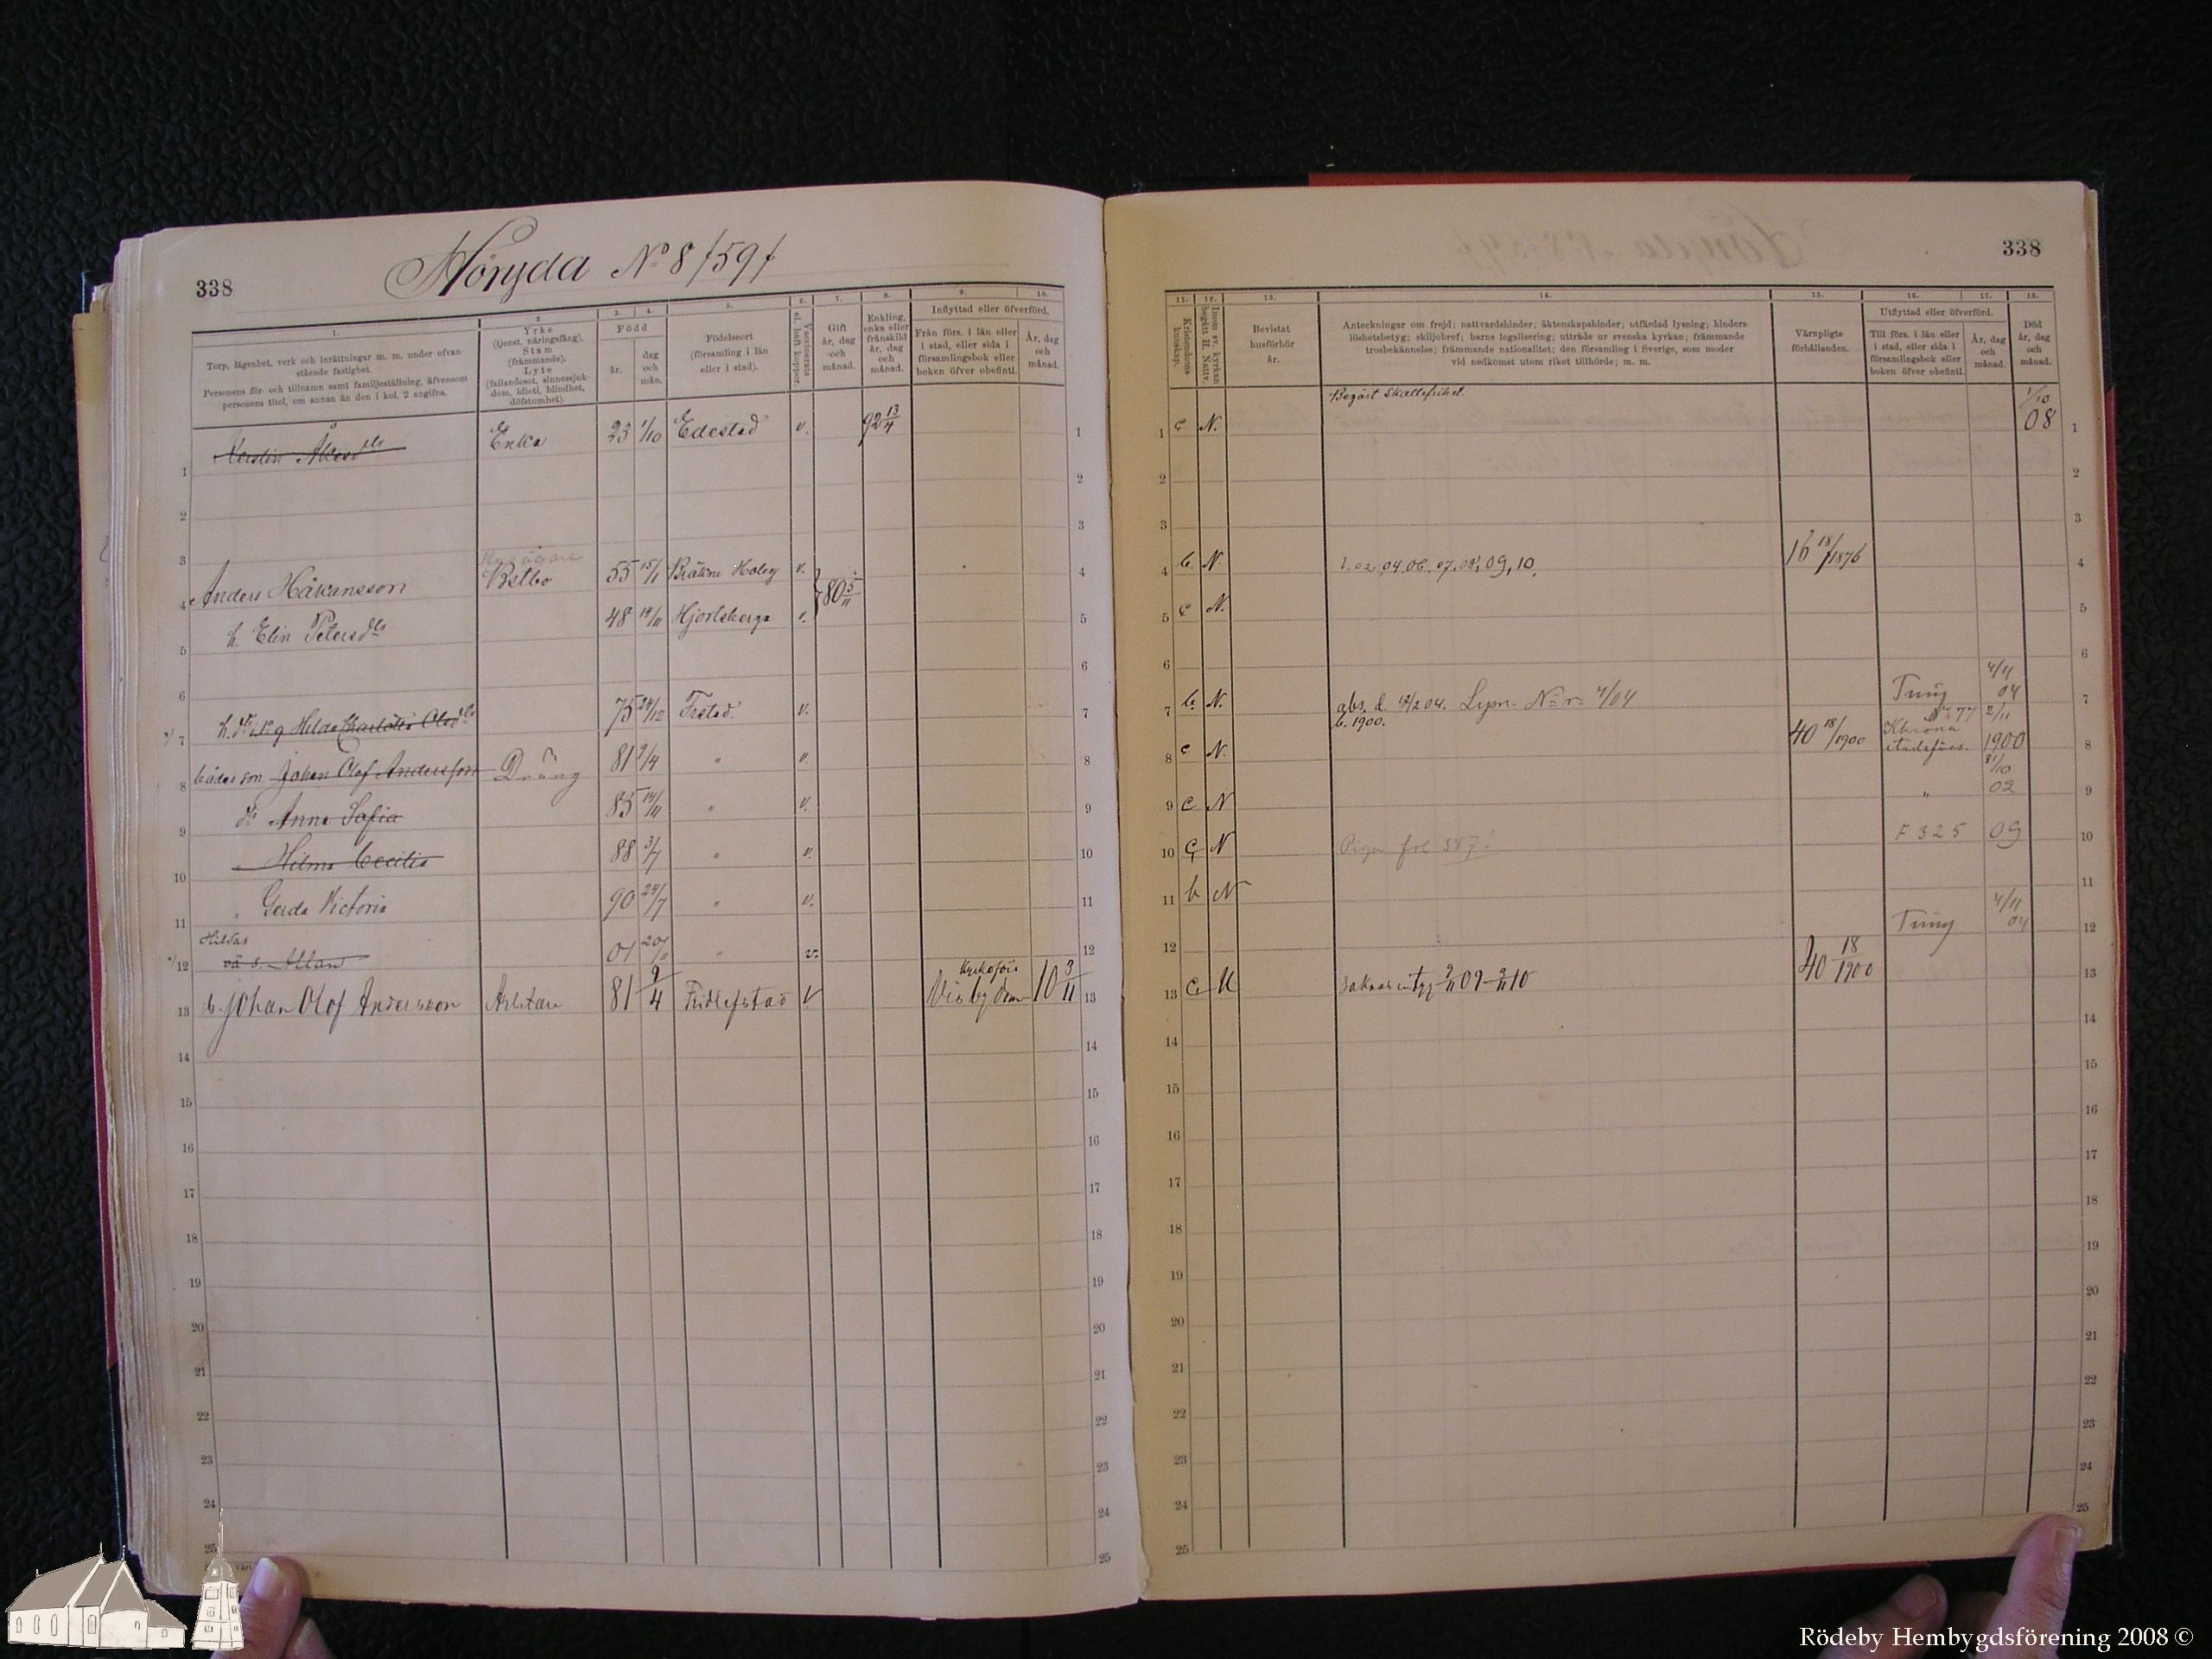 338
Höryda No 8 /59/
1. 2. 3. 4. 5. 6. 7. 8. 9. 10.
Torp, lägenhet, verk och inrättningar m. m. under ofvanstående fastighet.
Personens för- och tillnamn samt familjeställning, äfvensom personens titel, om annan än den i kol. 2 angifna.
Yrke (tjenst, näringsfång). Stam (främmande). Lyte (fallandesot, sinnessjukdom, idioti, blindhet, döfstumhet).
Född
år.
dag och mån.
Födelseort (församling i län eller i stad).
Vaccinerats el. haft koppor.
Gift år, dag och månad.
Enkling, enka eller frånskild år, dag och månad.
Inflyttad eller öfverförd.
Från förs. i län eller i stad, eller sida i församlingsbok eller boken öfver obefintl.
År, dag och månad.
1 Kerstin Åkesdtr Enka 23 1/10 Edestad v. 92 13/4 1
2 2
3 3
4 Anders Håkansson Bstbo 55 15/1 Bräkne Hoby v. 80 5/11 4
5 h. Elin Petersdtr 48 19/11 Hjortsberga v. 5
6 6
7 Charlotta Olsdtr 75 24/12 Frstad v. 7
8 bådas son Johan Olof Andersson Dräng 81 9/4 " v. 8
9 dr Anna Sofia 85 14/11 " v. 9
10 " Hilma Cecilia 88 3/7 " v. 10
11 " Gerda Victoria 90 24/7 " v. 11
Hildas
12 s. Allan 01 " v. 12
13 Johan Olof Andersson Arbetare 81 9/4 Fridlefstad v Visby 10 3/11 13
14 14
15 15
16 16
17 17
18 18
19 19
20 20
21 21
22 22
23 23
24 24
25 25
338
11. 12. 13. 14. 15. 16. 17. 18.
Kristendomskunskap.
Inom sv. kyrkan begått H. Nattv.
Bevistat husförhör år.
Anteckningar om frejd; nattvardshinder; äktenskapshinder; utfärdad lysning; hinderslöshetsbetyg; skiljobref; barns legalisering; utträde ur svenska kyrkan; främmande trosbekännelse; främmande nationalitet; den församling i Sverige, som moder vid nedkomst utom riket tillhörde; m. m.
Värnpligtsförhållanden.
Utflyttad eller öfverförd.
Till förs. i län eller i stad, eller sida i församlingsbok eller boken öfver obefintl.
År, dag och månad.
Död år, dag och månad.
1 c N. Begärt skattefrihet. 1/10 08 1
2 2
3 3
4 b. N. 04, 06, 07, 08, 09, 10. 16 18/1876 4
5 c N. 5
6 6
7 b. N. 4/04 Tving 4/11 04 7
b. 1900.
8 c N. 40 18/1900 Kkrona stadsförs. 2/11 1900 8
9 c N " 31/10 02 9
10 c N Piga fol 347! F 325 09 10
11 b N 11
12 Tving 4/11 04 12
13 c N 40 18/1900 13
14 14
15 15
16 16
17 17
18 18
19 19
20 20
21 21
22 22
23 23
24 24
25 25
Rödeby Hembygdsförening 2008 ©